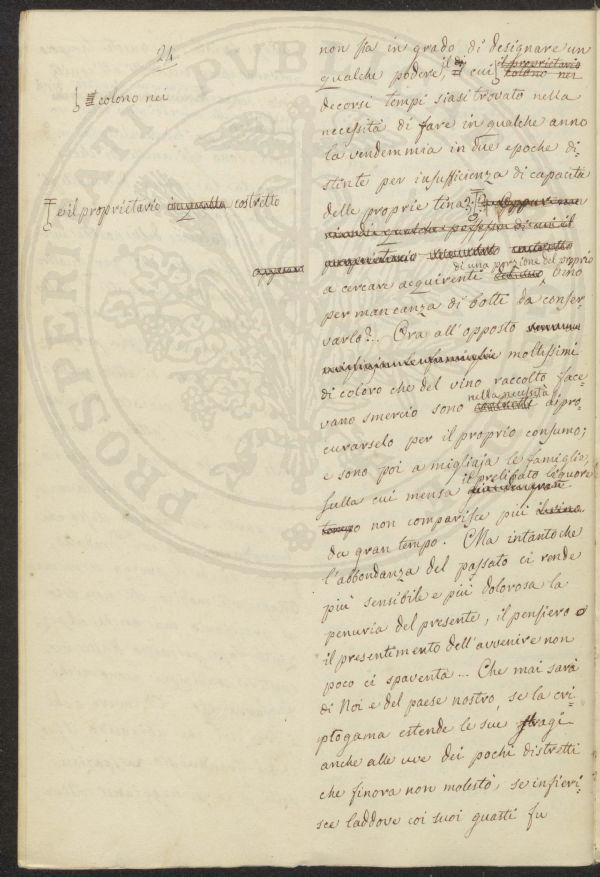 24
colono nei
e il proprietario costretto
non sia in grado di designare un
qualche podere, il di cui il proprietario
colono nei
decorsi tempi siasi trovato nella
necessità di fare in qualche anno
la vendemmia in due epoche di-
stinte per insufficienza di capacità
delle proprie tina? Oppur non
qualche di cui il
proprietario costretto
di una porzione del proprio
a cercare acquirenti vino
per mancanza di botti da conser-
varlo?.. Ora all'opposto
moltissimi
di coloro che del vino raccolto face-
nella necessità
vano smercio sono costretti a pro-
curarselo per il proprio consumo;
e sono poi a migliaja le famiglie,
il prelibato liquore
sulla cui mensa
non comparisce più
da gran tempo. Ma intantoche
l'abbondanza del passato ci rende
più sensibile e più dolorosa la
penuria del presente, il pensiero o
il presentimento dell'avvenire non
poco ci spaventa... Che mai sarà
di Noi e del paese nostro, se la cri-
ptogama estende le sue stragi
anche alle uve dei pochi distretti
che finora non molestò, se infieri-
sce laddove coi suoi guasti fu
PROSPERITATI PVBLI